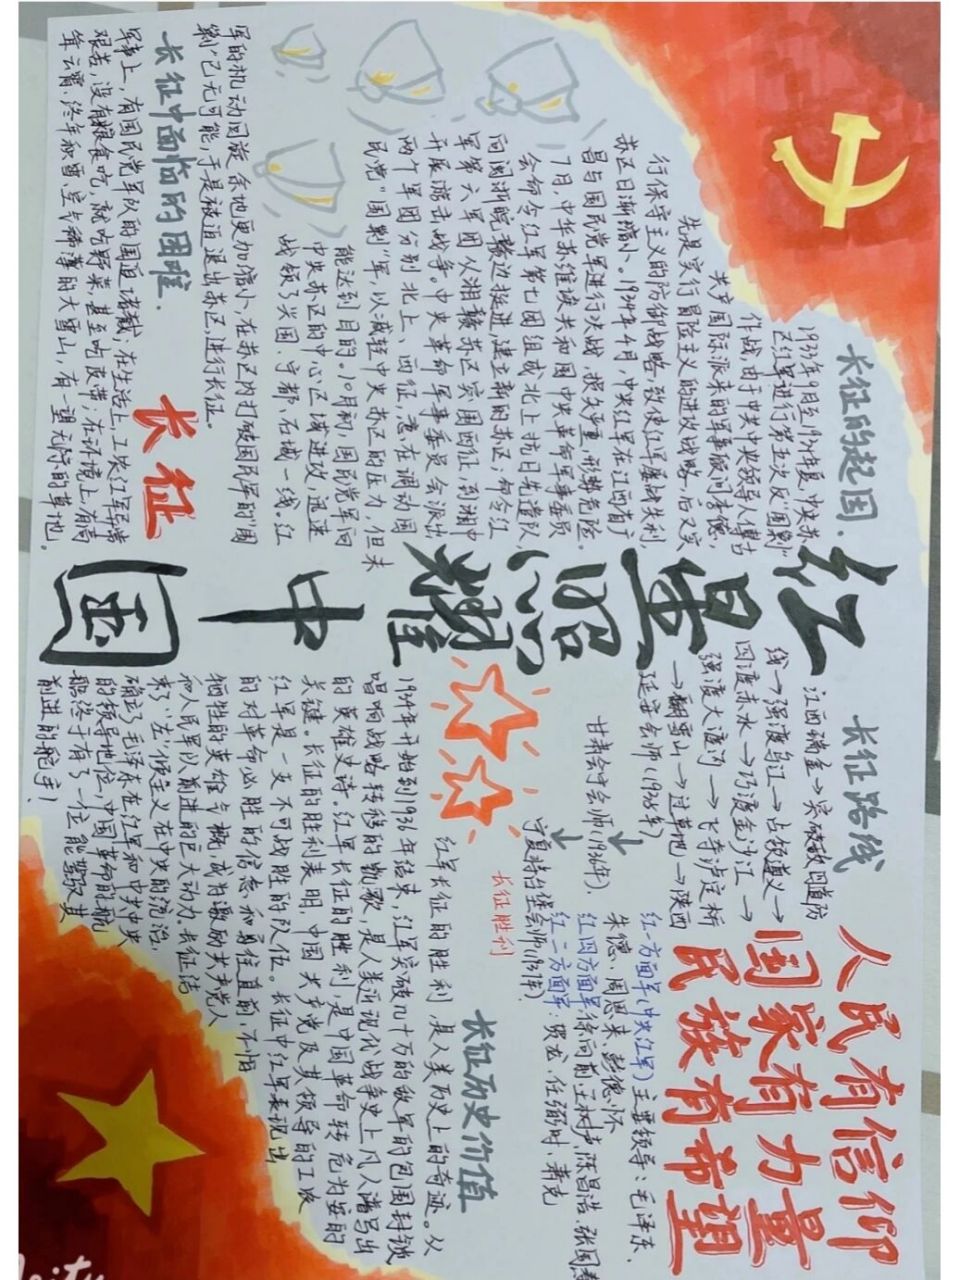 红星照耀中国
长征的起因
1933年9月至1934年夏,中央苏
区红军进行第五次反“围剿”
作战,由于中央领导人博古
共产国际派来的军事顾问李德,
先是实行冒险主义的进攻战略,后又实
行保守主义的防御战略,致使红军屡战失利,
苏区日渐缩小。1934年4月,中央红军在江西省广
昌与国民党军进行决战,损失严重,形势危险。
7月,中华苏维埃共和国中央革命军事委员
会命令红军第七团组成北上抗日先遣队,
向闽浙皖赣边挺进,建立新的苏区;命令红
军第六军团从湘赣苏区突围西征,到湘中
开展游击战争。中央革命军事委员会派出
两个军团分别北上、西征,意在调动国
民党“围剿”军,以减轻中央苏区的压力,但未
能达到目的。10月初,国民党军向
中央苏区的中心区域进攻,迅速
占领了兴国、宁都、石城一线,红
军的机动回旋余地更加缩小,在苏区内打破国民军的“围
剿”已无可能,于是被迫退出苏区,进行长征。
长征中面临的困难.
长征
军事上,有国民党军队的围追堵截;在生活上,工农红军异常
艰苦,没有粮食吃,就吃野菜甚至吃皮带;在环境上,有高
耸云霄、终年积雪、空气稀薄的大雪山,有一望无际的草地。
长征路线
江西瑞金→突破敌四道防
线→强渡乌江→占领遵义→
四渡赤水→巧渡金沙江→
强渡大渡河→飞夺泸定桥
→翻雪山→过草地→陕西
延安会师(1935年)
↓
甘肃会宁会师(1936年).
↓
宁夏将台堡会师(1936年).
长征胜利
人民有信仰
国家有力量
民族有希望
红一方面军(中央红军)主要领导:毛泽东、
朱德、周恩来、彭德怀
红四方面军:徐向前、王树声、陈昌浩、张国焘
红二方面军:贺龙、任弼时、萧克
长征历史价值
红军长征的胜利,是人类历史上的奇迹。从
1934年开始到1936年结束,红军突破几十万的敌军的包围封锁
唱响战略转移的凯歌,是人类近现代战争史上凡人谱写出
的英雄史诗。红军长征的胜利,是中国革命转危为安的
关键。长征的胜利表明,中国共产党及其领导的工农
红军是一支不可战胜的队伍。长征中红军表现出
的对革命必胜的信念和勇往直前,不怕
牺牲的英雄气概,成为激励共产党人
和人民军队前进的巨大动力。长征结
束了“左”倾主义在中央的统治,
确立了毛泽东在红军和中共中央
的领导地位,中国革命的航
船终于有了一个能驾驭其
前进的舵手!